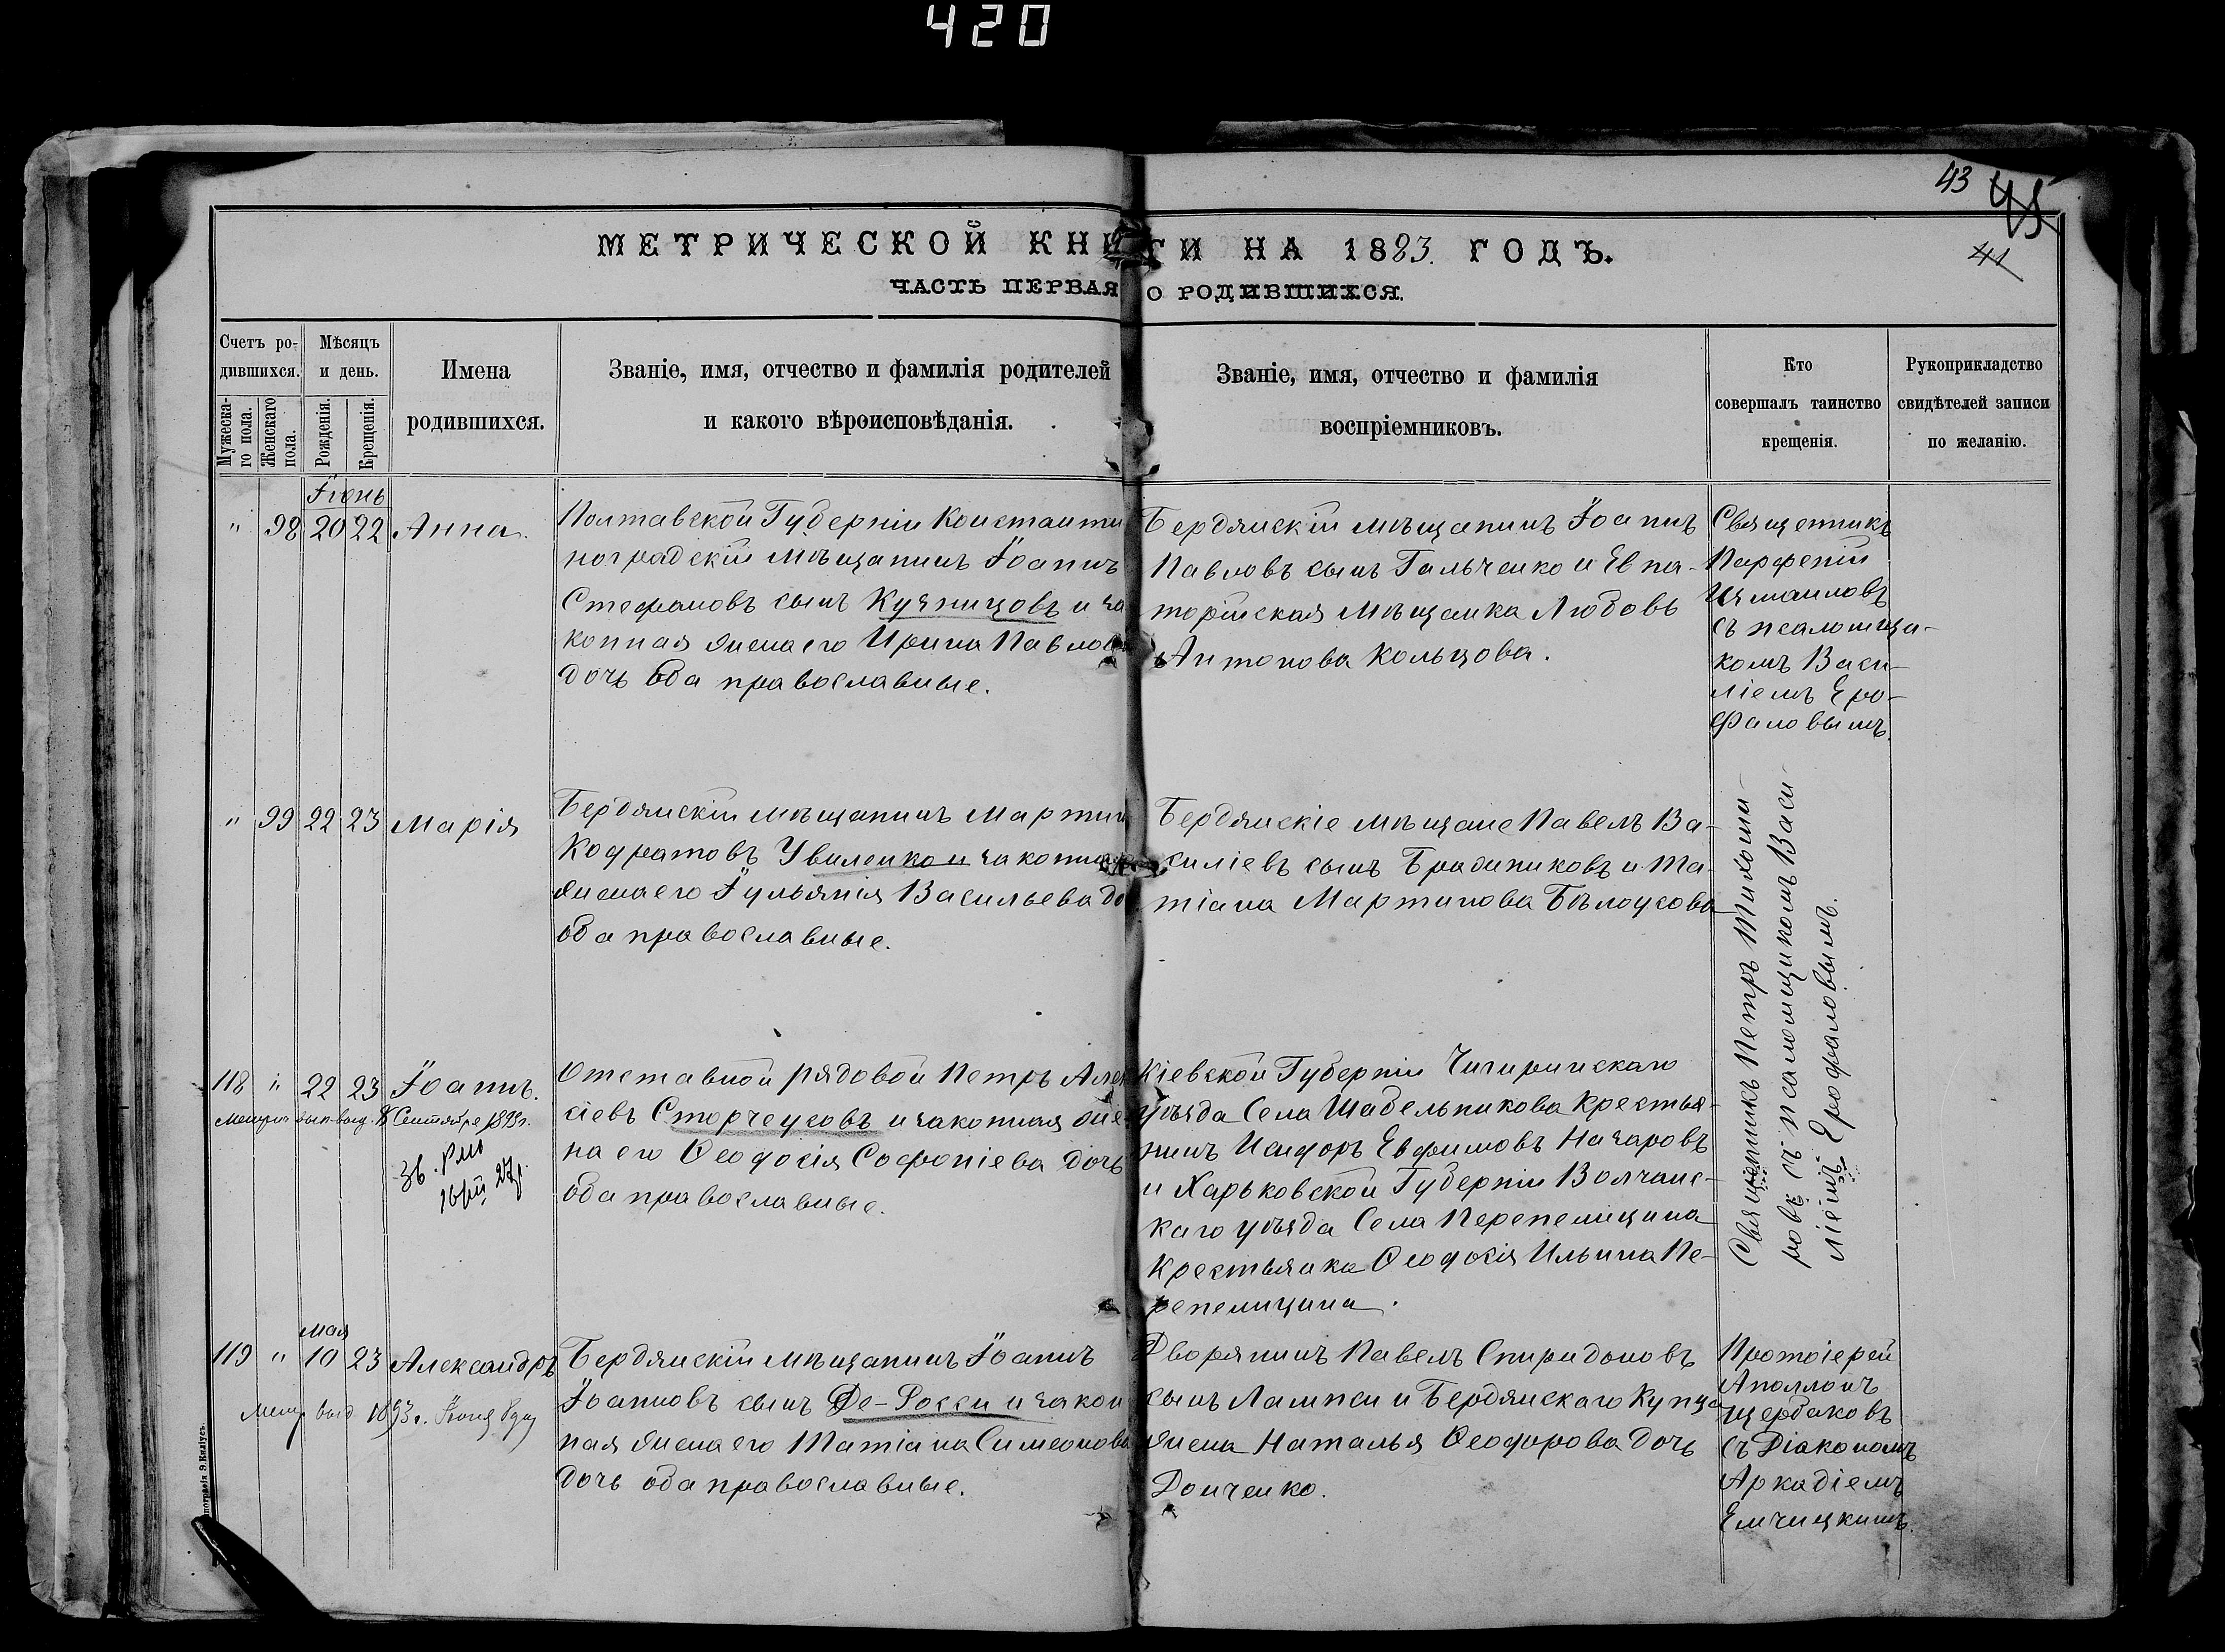 420
43 45
41
МЕТРИЧЕСКОЙ КНИГИ НА 1883. ГОДЪ.
ЧАСТЬ ПЕРВАЯ О РОДИВШИХСЯ.
Счетъ ро-
дившихся.
Мужеска-
го пола.
Женскаго
пола.
Мѣсяцъ
и день.
Рожденія.
Крещенія.
Имена
родившихся.
Званіе, имя, отчество и фамилія родителей
и какого вѣроисповѣданія.
Званіе, имя, отчество и фамилія
воспріемниковъ.
Кто
совершалъ таинство
крещенія.
Рукоприкладство
свидѣтелей записи
по желанію.
Іюнь
" 98 20 22 Анна.
Полтавской Губерніи Константи
ноградскій мѣщанинъ Іоаннъ
Стефановъ сынъ Кузницовъ и за
конная жена его Ирина Павлова
дочь оба православные.
Бердянскій мѣщанинъ Іоаннъ
Павловъ сынъ Гальченко и Евпа-
торійская мѣщанка Любовь
Антонова Кольцова.
Священникъ
Парфеній
Измаиловъ
съ псаломщи-
комъ Васи-
ліемъ Еро-
фаловымъ.
" 99 22 23 Марія
Бердянскій мѣщанинъ Мартин
Кодратовъ Увиленко и законная
жена его Іульянія Васильева до
оба православные.
Бердянскіе мѣщане Павелъ Ва-
силіевъ сынъ Бражниковъ и Та-
тіана Мартинова Бѣлоусова
Священникъ Петръ Тихоми-
ровъ съ псаломщикомъ Васи-
ліемъ Ерофаловымъ.
118 " 22 23 Іоаннъ.
Метрич. вып. выд. Сентября 1893 г.
Отставной рядовой Петръ Алек
сіевъ Сторчеусовъ и законная же
на его Ѳеодосія Софоніева дочь
оба православные.
Кіевской Губерніи Чигиринскаго
уѣзда Села Шабельникова Крестья-
нинъ Исидоръ Евфимовъ Назаровъ
и Харьковской Губерніи Волчанс-
каго уѣзда Села Перепелицина
Крестьянка Ѳеодосія Ильина Пе-
репелицина.
мая
119 " 10 23 Александръ
Метр. выд. 1893 г. Іюня
Бердянскій мѣщанинъ Іоаннъ
Іоанновъ сынъ Де-Росси и закон
ная жена его Татіана Симеонова
дочь оба православные.
Дворянинъ Павелъ Спиридоновъ
сынъ Лампси и Бердянскаго Купца
жена Наталья Ѳеодорова дочь
Донченко.
Протоіерей
Аполлонъ
Щербаковъ
съ Діакономъ
Аркадіемъ
Емчицкимъ.